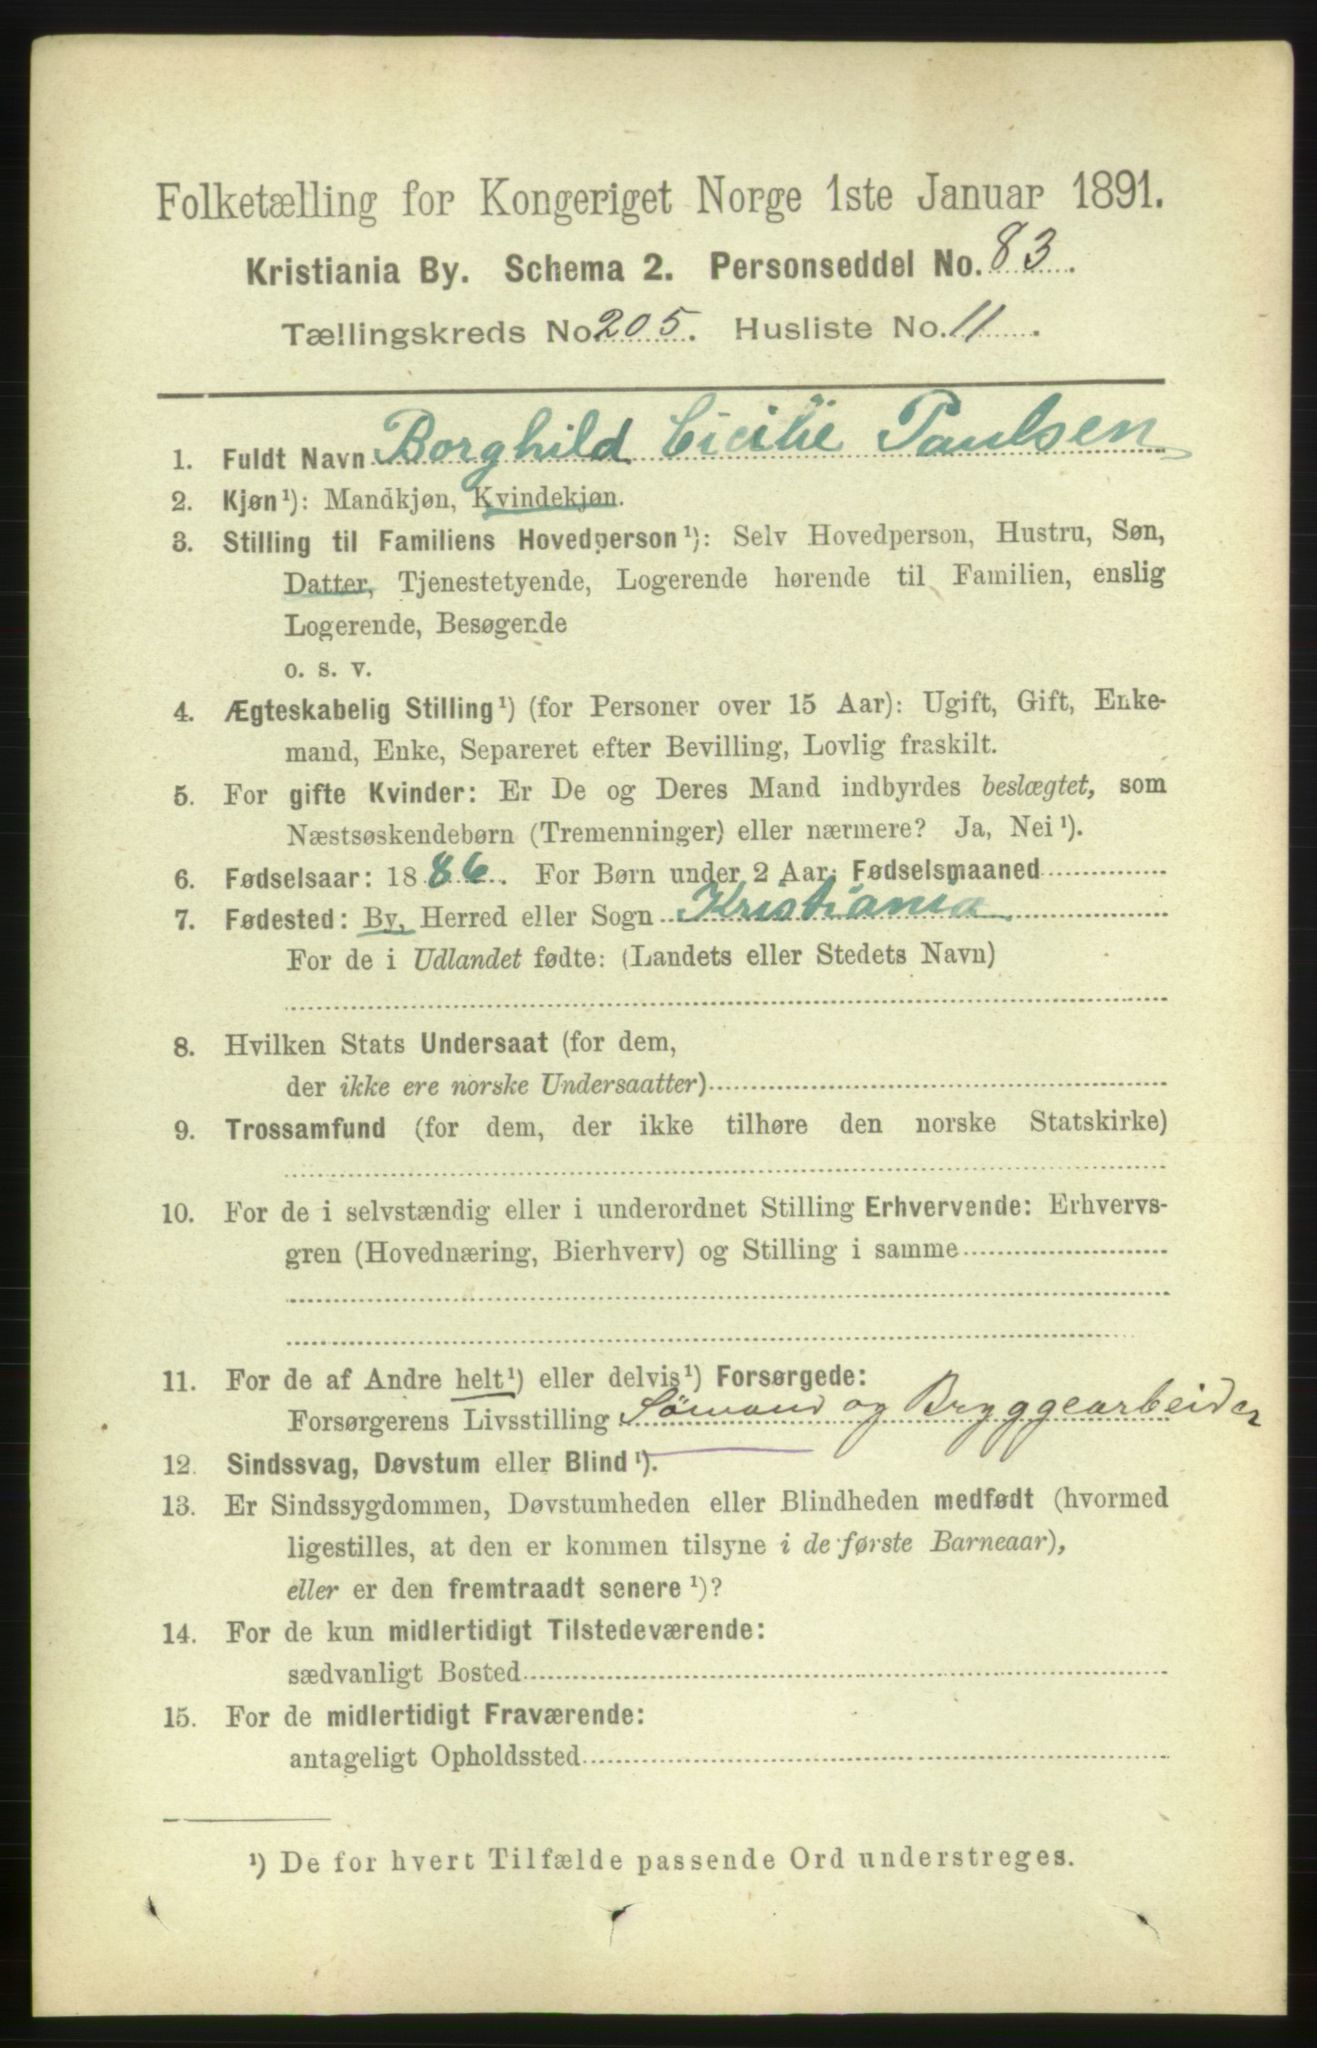 Folketælling for Kongeriget Norge 1ste Januar 1891.
Kristiania By. Schema 2. Personseddel No. 83.
Tællingskreds No. 205. Husliste No. 11.
1. Fuldt Navn Borghild Cicilie Paulsen
2. Kjøn¹): Mandkjøn, Kvindekjøn.
3. Stilling til Familiens Hovedperson¹): Selv Hovedperson, Hustru, Søn,
Datter, Tjenestetyende, Logerende hørende til Familien, enslig
Logerende, Besøgende
o. s. v.
4. Ægteskabelig Stilling¹) (for Personer over 15 Aar): Ugift, Gift, Enke-
mand, Enke, Separeret efter Bevilling, Lovlig fraskilt.
5. For gifte Kvinder: Er De og Deres Mand indbyrdes beslægtet, som
Næstsøskendebørn (Tremenninger) eller nærmere? Ja, Nei¹).
6. Fødselsaar: 1886. For Børn under 2 Aar: Fødselsmaaned
7. Fødested: By, Herred eller Sogn Kristiania
For de i Udlandet fødte: (Landets eller Stedets Navn)
8. Hvilken Stats Undersaat (for dem,
der ikke ere norske Undersaatter)
9. Trossamfund (for dem, der ikke tilhøre den norske Statskirke)
10. For de i selvstændig eller i underordnet Stilling Erhvervende: Erhvervs-
gren (Hovednæring, Bierhverv) og Stilling i samme
11. For de af Andre helt¹) eller delvis¹) Forsørgede:
Forsørgerens Livsstilling Sömand og Bryggearbeider
12. Sindssvag, Døvstum eller Blind¹).
13. Er Sindssygdommen, Døvstumheden eller Blindheden medfødt (hvormed
ligestilles, at den er kommen tilsyne i de første Barneaar),
eller er den fremtraadt senere¹)?
14. For de kun midlertidigt Tilstedeværende:
sædvanligt Bosted
15. For de midlertidigt Fraværende:
antageligt Opholdssted
¹) De for hvert Tilfælde passende Ord understreges.